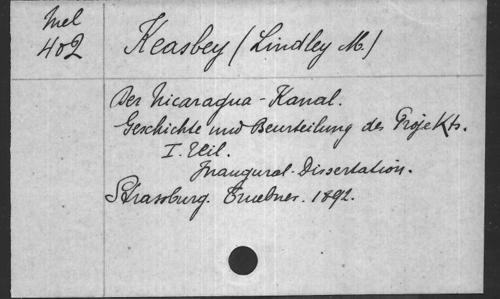 Mel
402
Keasbey (Lindley M.)
Der Nicaragua-Kanal.
Geschichte und Beurteilung des Projekts.
I. Teil.
Inaugural-Dissertation.
Strassburg. Truebner. 1892.